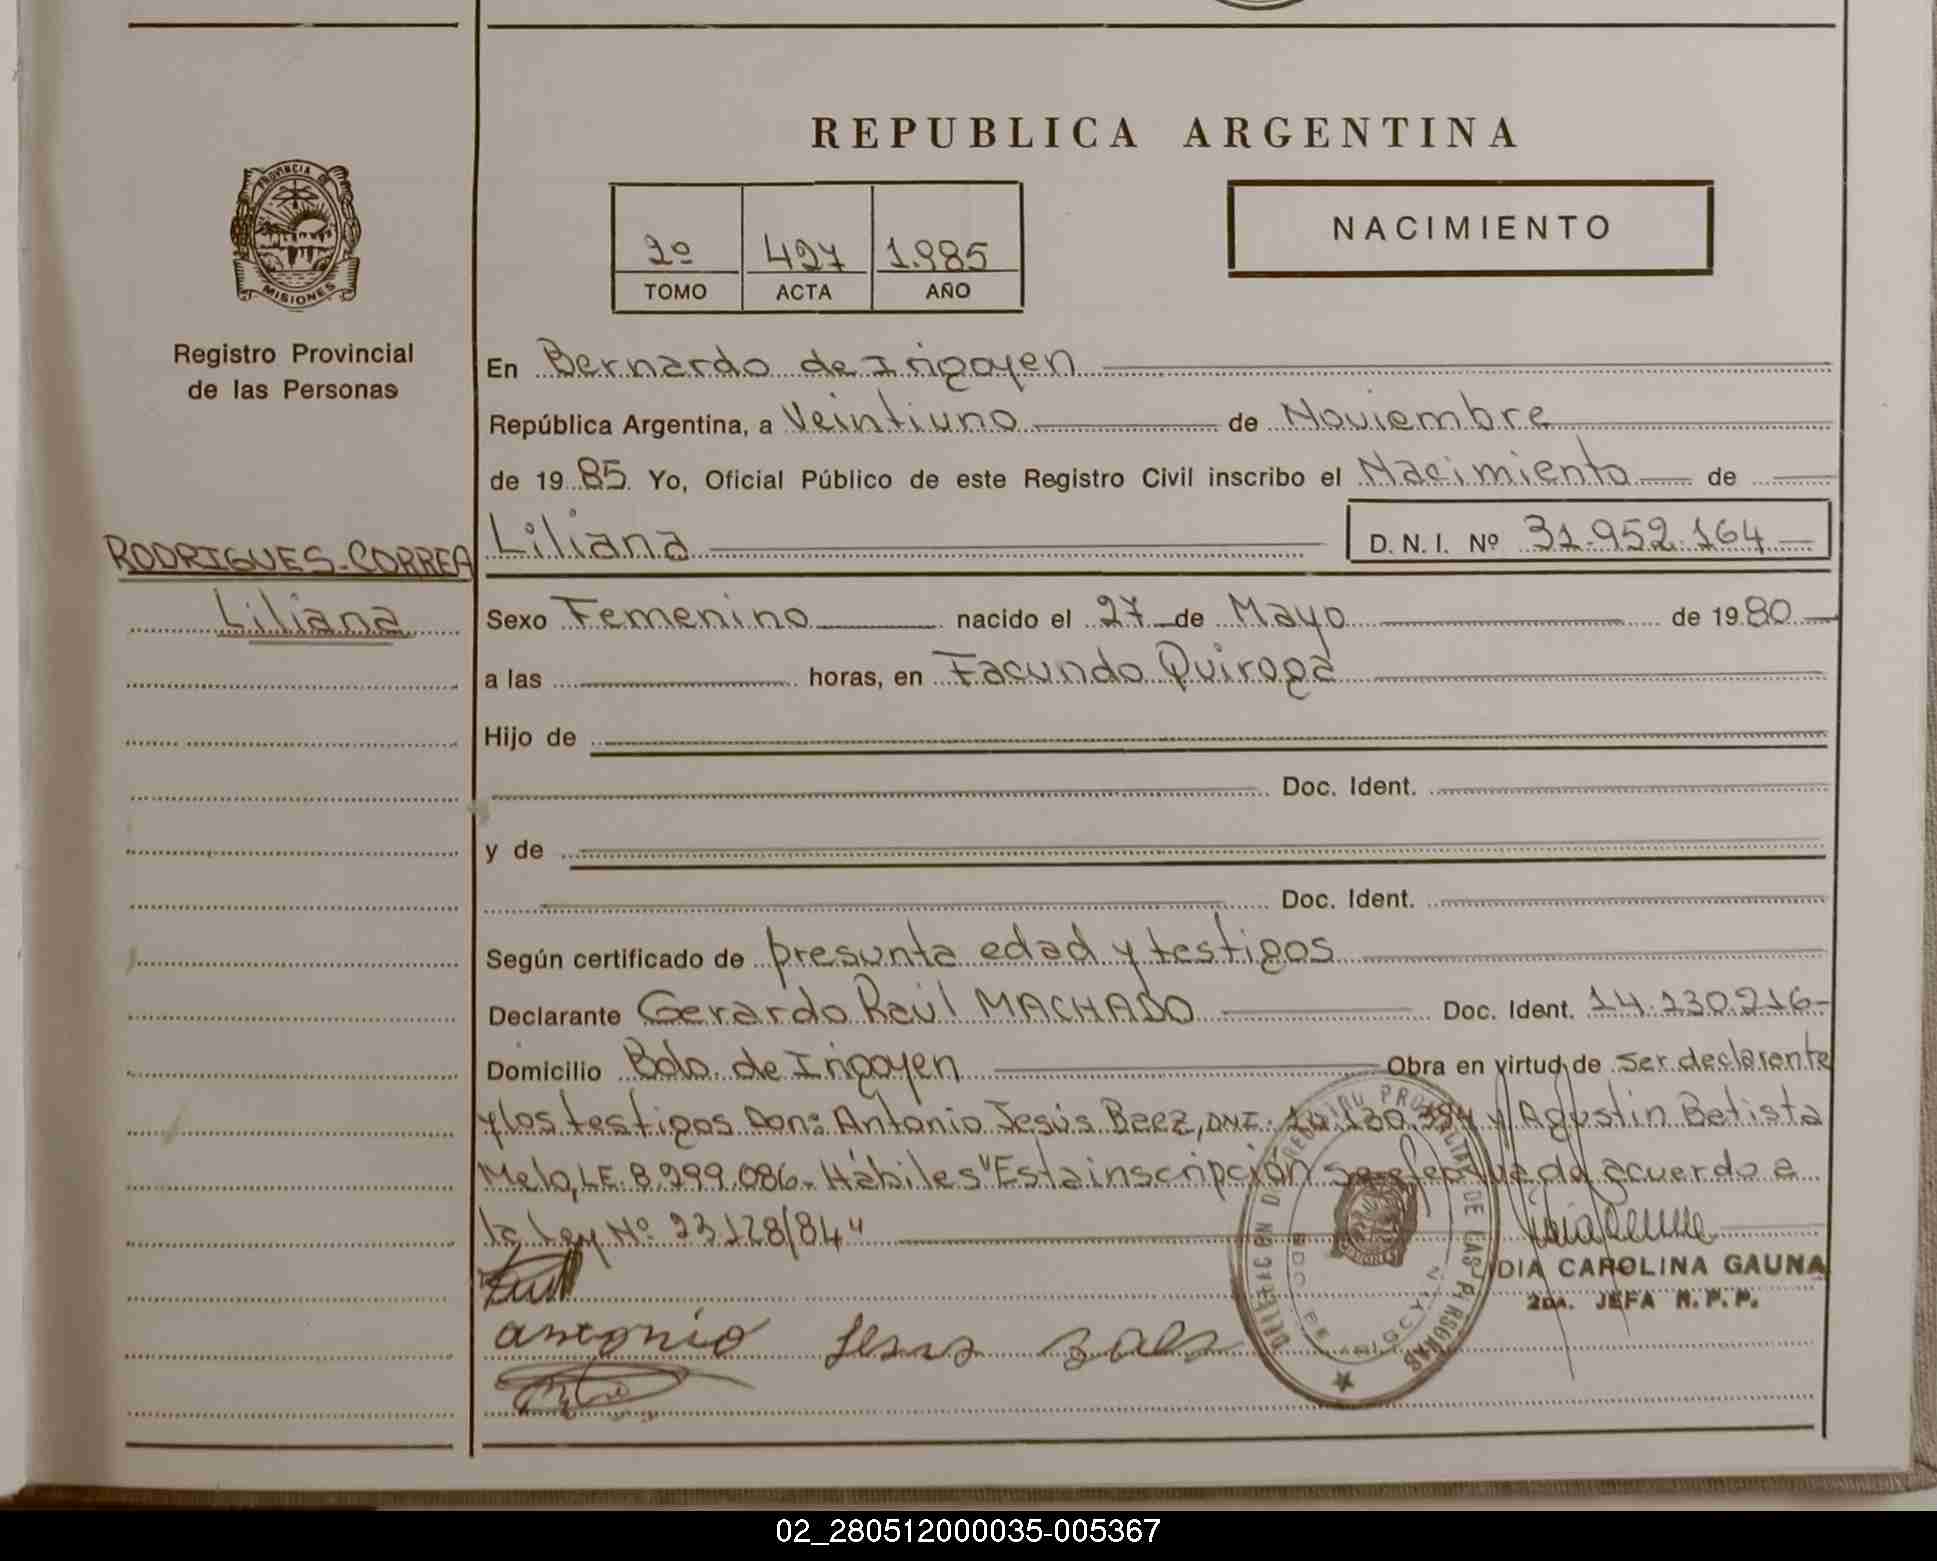 REPUBLICA ARGENTINA
PROVINCIA DE
MISIONES
Registro Provincial
de las Personas
2º 427 1.985
TOMO ACTA AÑO
NACIMIENTO
En Bernardo de Irigoyen
República Argentina, a Veintiuno de Noviembre
de 19 85 Yo, Oficial Público de este Registro Civil inscribo el Nacimiento de
RODRIGUES-CORREA
Liliana
Liliana D. N. I. Nº 31.952.164
Sexo Femenino nacido el 27 de Mayo de 19 80
a las horas, en Facundo Quiroga
Hijo de
Doc. Ident.
y de
Doc. Ident.
Según certificado de presunta edad y testigos
Declarante Gerardo Raúl MACHADO Doc. Ident. 14.130.216-
Domicilio Bdo. de Irigoyen Obra en virtud de ser declarante
y los testigos Don: Antonio Jesús Baez, DNI. 14.130.394 y Agustin Batista
Melo, LE. 8.299.086- Hábiles "Esta inscripción se efectua da acuerdo a
la Ley Nº 23128/84"
DIA CAROLINA GAUNA
2DA. JEFA R. P. P.
antonio Jesus baes
02_280512000035-005367